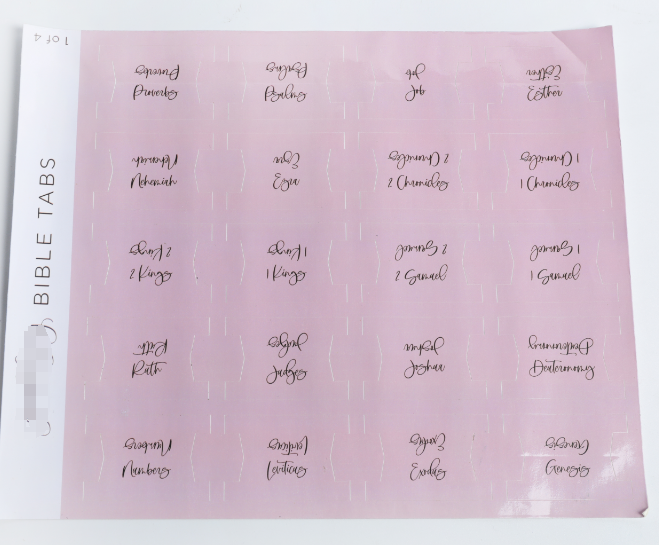 1 of 4
BIBLE TABS
Proverbs Psalms Job Esther
Proverbs Psalms Job Esther
Nehemiah Ezra 2 Chronicles 1 Chronicles
Nehemiah Ezra 2 Chronicles 1 Chronicles
2 Kings 1 Kings 2 Samuel 1 Samuel
2 Kings 1 Kings 2 Samuel 1 Samuel
Ruth Judges Joshua Deuteronomy
Ruth Judges Joshua Deuteronomy
Numbers Leviticus Exodus Genesis
Numbers Leviticus Exodus Genesis